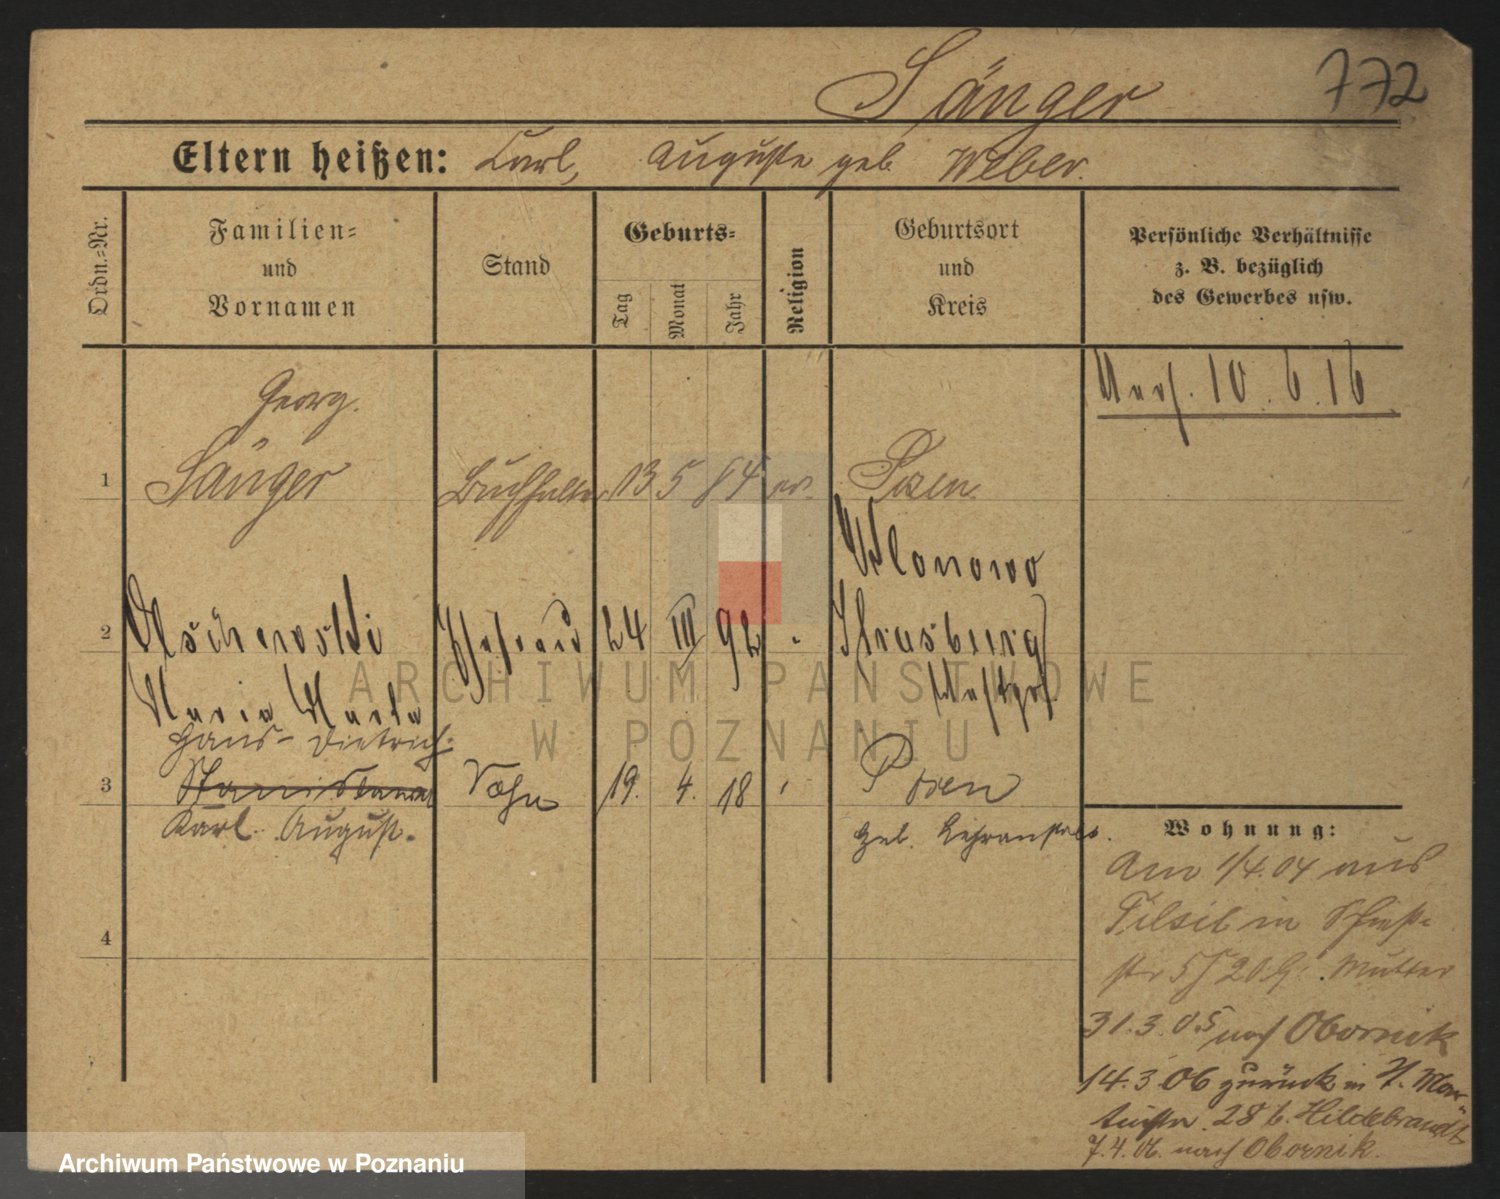 Sänger
772
Eltern heißen: Carl, Auguste geb. Weber.
Ordn.-Nr.
Familien-
und
Vornamen
Stand
Geburts-
Tag
Monat
Jahr
Religion
Geburtsort
und
Kreis
Persönliche Verhältnisse
z. B. bezüglich
des Gewerbes usw.
10.6.16
Georg.
1 Sänger Buchhalter 13 5 84 ev. Posen
2 Ehefrau 24 III 92 Strasburg
Westpr.
Maria Marta
Hans-Dietrich
3 Sohn 19. 4. 18 Posen
Karl August.
geb.
4
Wohnung:
Am 1/4.04 aus
Tilsit in
str 5 Mutter
31.3.05 nach Obornik
14.3.06 zurück in
28 b. Hildebrandt
7.4.06. nach Obornik.
ARCHIWUM PAŃSTWOWE
W POZNANIU
Archiwum Państwowe w Poznaniu